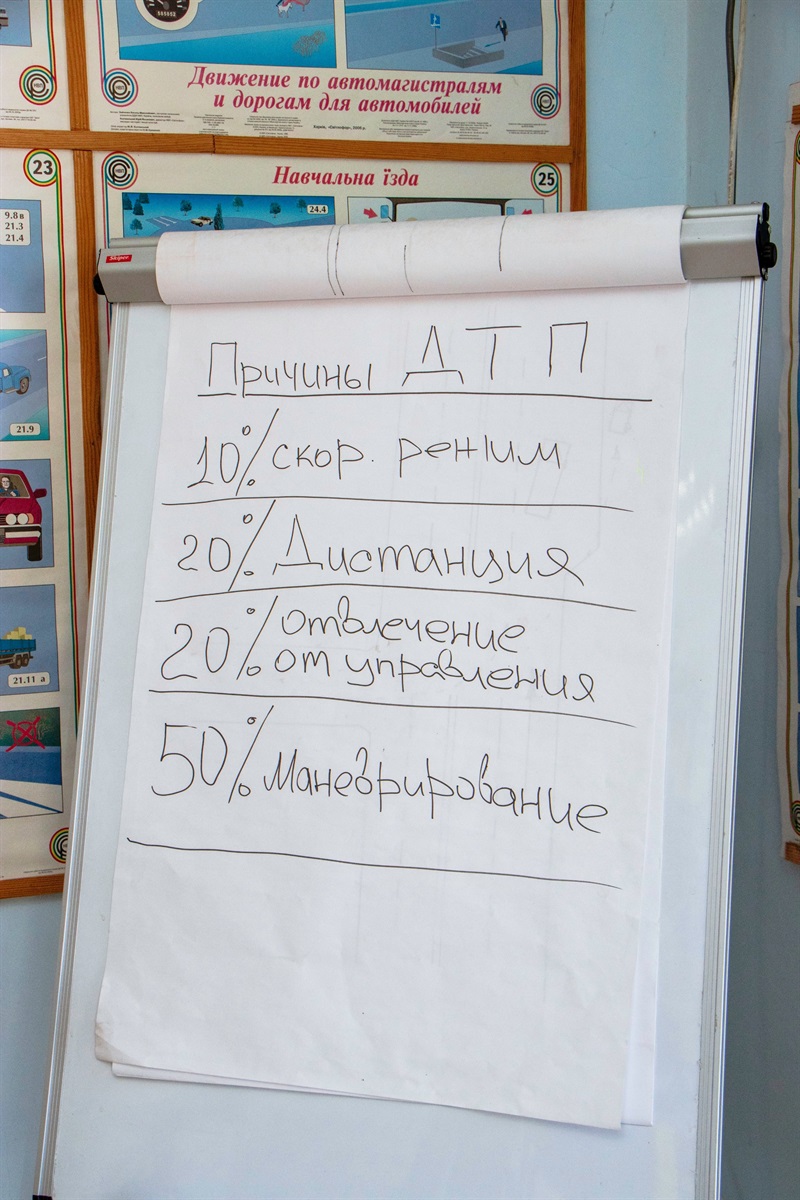 Движение по автомагистралям
и дорогам для автомобилей
23
Навчальна їзда
25
24.4
9.8 в
21.3
21.4
Skiper
Причины ДТП
10% скор. режим
20% Дистанция
20% отвлечение
от управления
50% Маневрирование
21.9
21.11 а